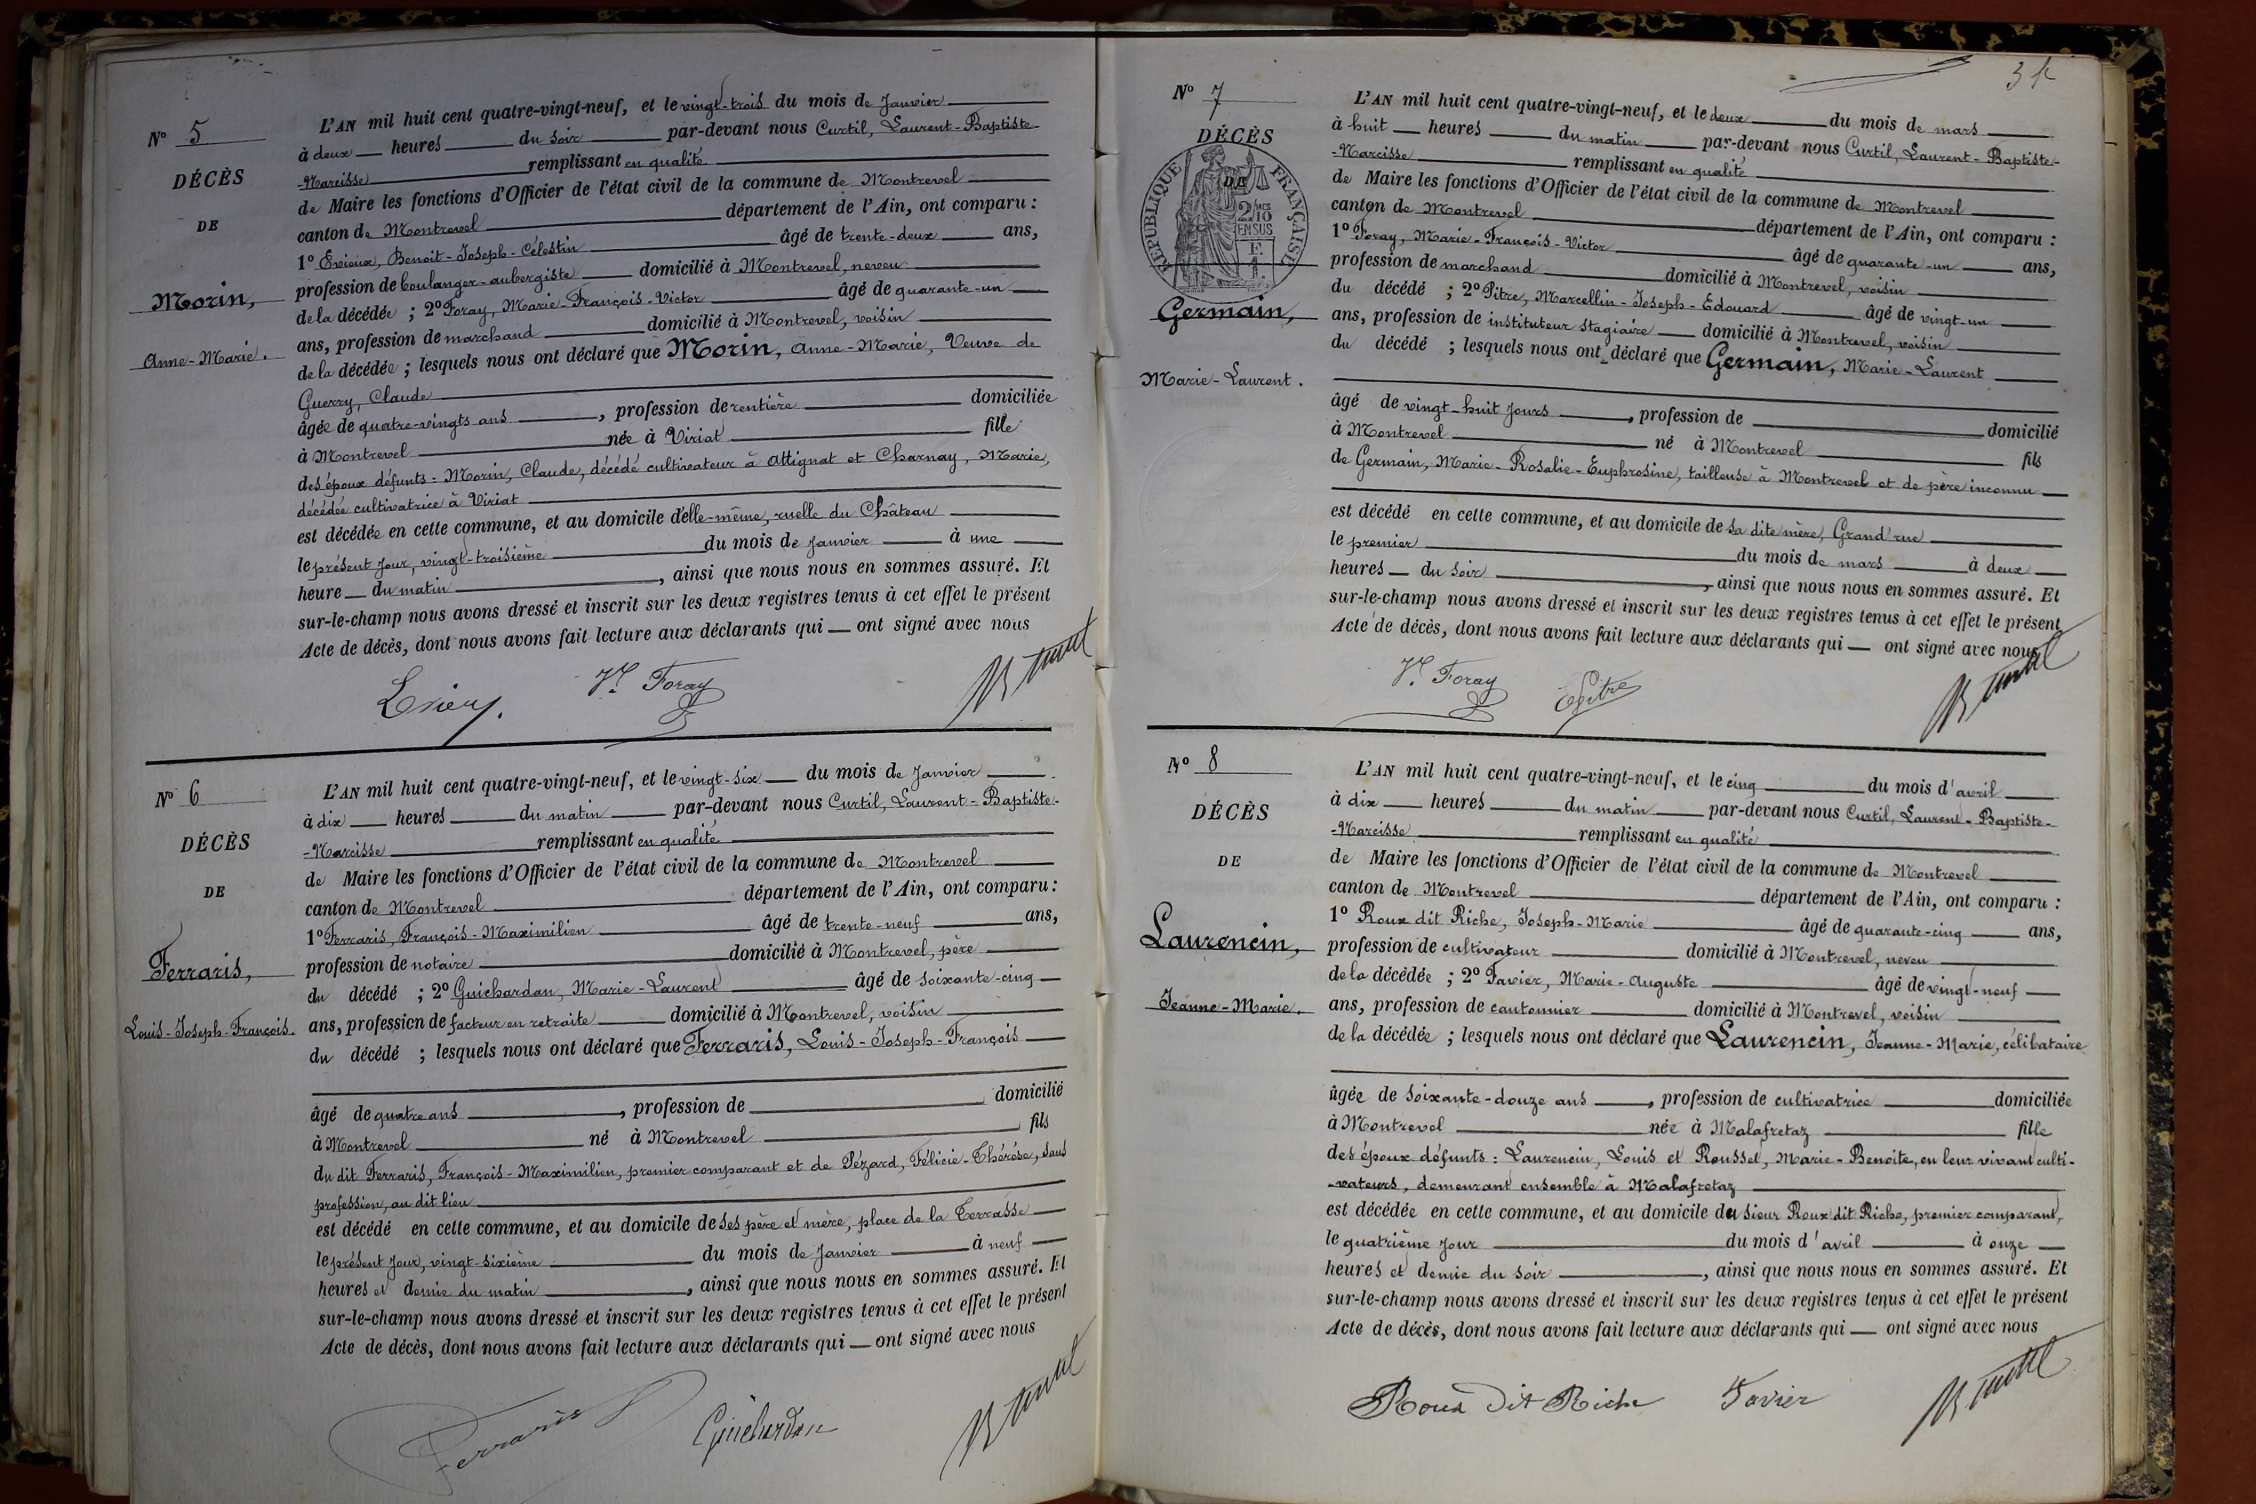 N° 5
DÉCÈS
DE
Morin,
Anne-Marie.
L'AN mil huit cent quatre-vingt-neuf, et le vingt-trois du mois de Janvier
à deux heures du soir par-devant nous Curtil, Laurent-Baptiste-
-Narcisse remplissant en qualité
de Maire les fonctions d'Officier de l'état civil de la commune de Montrevel
canton de Montrevel département de l'Ain, ont comparu :
1° Evieux, Benoit-Joseph-Célestin âgé de trente-deux ans,
profession de boulanger-aubergiste domicilié à Montrevel, neveu
de la décédée ; 2° Foray, Marie-François-Victor âgé de quarante-un
ans, profession de marchand domicilié à Montrevel, voisin
de la décédée ; lesquels nous ont déclaré que Morin, Anne-Marie, Veuve de
Guerry, Claude
âgée de quatre-vingts ans, profession de rentière domiciliée
à Montrevel née à Viriat fille
des époux défunts : Morin, Claude, décédé cultivateur à Attignat et Charnay, Marie,
décédée cultivatrice à Viriat
est décédée en cette commune, et au domicile d'elle-même, ruelle du Château
le présent jour, vingt-troisième du mois de Janvier à une
heure du matin, ainsi que nous nous en sommes assuré. Et
sur-le-champ nous avons dressé et inscrit sur les deux registres tenus à cet effet le présent
Acte de décès, dont nous avons fait lecture aux déclarants qui ont signé avec nous
Vr Foray
N° 6
DÉCÈS
DE
Ferraris,
Louis-Joseph-François.
L'AN mil huit cent quatre-vingt-neuf, et le vingt-six du mois de Janvier
à dix heures du matin par-devant nous Curtil, Laurent-Baptiste-
-Narcisse remplissant en qualité
de Maire les fonctions d'Officier de l'état civil de la commune de Montrevel
canton de Montrevel département de l'Ain, ont comparu :
1° Ferraris, François-Maximilien âgé de trente-neuf ans,
profession de notaire domicilié à Montrevel, père
du décédé ; 2° Guichardan, Marie-Laurent âgé de soixante-cinq
ans, profession de facteur en retraite domicilié à Montrevel, voisin
du décédé ; lesquels nous ont déclaré que Ferraris, Louis-Joseph-François
âgé de quatre ans, profession de domicilié
à Montrevel né à Montrevel fils
du dit Ferraris, François-Maximilien, premier comparant et de Pézard, Félicie-Thérèse, sans
profession, au dit lieu
est décédé en cette commune, et au domicile de ses père et mère, place de la Terrasse
le présent jour, vingt-sixième du mois de Janvier à neuf
heures et demie du matin, ainsi que nous nous en sommes assuré. Et
sur-le-champ nous avons dressé et inscrit sur les deux registres tenus à cet effet le présent
Acte de décès, dont nous avons fait lecture aux déclarants qui ont signé avec nous
Ferraris Guichardan
N° 7
DÉCÈS
DE
RÉPUBLIQUE FRANÇAISE
2/10 EN SUS
Germain,
Marie-Laurent.
L'AN mil huit cent quatre-vingt-neuf, et le deux du mois de mars
à huit heures du matin par-devant nous Curtil, Laurent-Baptiste-
-Narcisse remplissant en qualité
de Maire les fonctions d'Officier de l'état civil de la commune de Montrevel
canton de Montrevel département de l'Ain, ont comparu :
1° Foray, Marie-François-Victor âgé de quarante-un ans,
profession de marchand domicilié à Montrevel, voisin
du décédé ; 2° Pitre, Marcellin-Joseph-Edouard âgé de vingt-un
ans, profession de instituteur stagiaire domicilié à Montrevel, voisin
du décédé ; lesquels nous ont déclaré que Germain, Marie-Laurent
âgé de vingt-huit jours, profession de domicilié
à Montrevel né à Montrevel fils
de Germain, Marie-Rosalie-Euphrosine, tailleuse à Montrevel et de père inconnu
est décédé en cette commune, et au domicile de sa dite mère, Grand'rue
le premier du mois de mars à deux
heures du soir, ainsi que nous nous en sommes assuré. Et
sur-le-champ nous avons dressé et inscrit sur les deux registres tenus à cet effet le présent
Acte de décès, dont nous avons fait lecture aux déclarants qui ont signé avec nous
Vr Foray Pitre
N° 8
DÉCÈS
DE
Laurencin,
Jeanne-Marie.
L'AN mil huit cent quatre-vingt-neuf, et le cinq du mois d'avril
à dix heures du matin par-devant nous Curtil, Laurent-Baptiste-
-Narcisse remplissant en qualité
de Maire les fonctions d'Officier de l'état civil de la commune de Montrevel
canton de Montrevel département de l'Ain, ont comparu :
1° Roux dit Riche, Joseph-Marie âgé de quarante-cinq ans,
profession de cultivateur domicilié à Montrevel, neveu
de la décédée ; 2° Favier, Marie-Auguste âgé de vingt-neuf
ans, profession de cantonnier domicilié à Montrevel, voisin
de la décédée ; lesquels nous ont déclaré que Laurencin, Jeanne-Marie, célibataire
âgée de soixante-douze ans, profession de cultivatrice domiciliée
à Montrevel née à Malafretaz fille
des époux défunts : Laurencin, Louis et Rousset, Marie-Benoite, en leur vivant culti-
-vateurs, demeurant ensemble à Malafretaz
est décédée en cette commune, et au domicile du sieur Roux dit Riche, premier comparant,
le quatrième jour du mois d'avril à onze
heures et demie du soir, ainsi que nous nous en sommes assuré. Et
sur-le-champ nous avons dressé et inscrit sur les deux registres tenus à cet effet le présent
Acte de décès, dont nous avons fait lecture aux déclarants qui ont signé avec nous
Roux dit Riche Favier